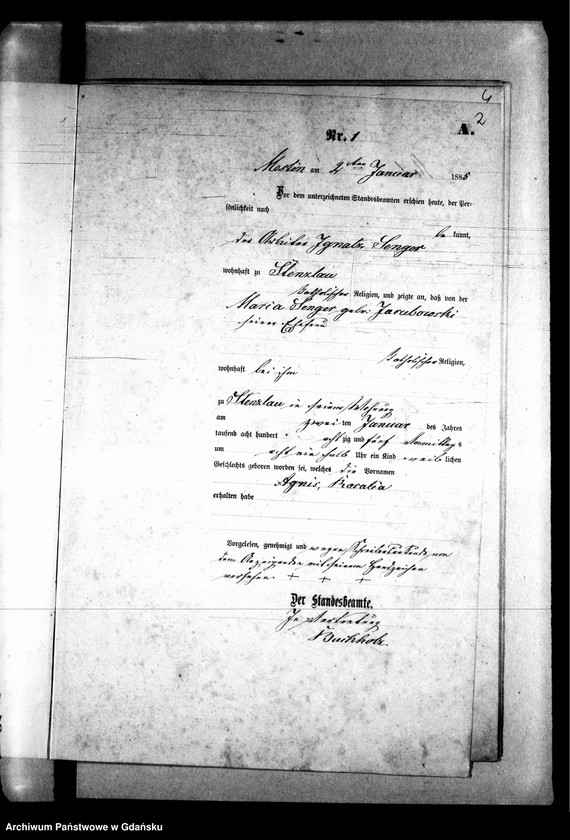 4
A. 2
Nr. 1
Mestin am 2 ten Januar 1885
Vor dem unterzeichneten Standesbeamten erschien heute, der Per-
sönlichkeit nach
be kannt,
der Arbeiter Ignatz Senger
wohnhaft zu Stenzlau
katholischer Religion, und zeigte an, daß von der
Maria Senger geb: Jacubowski
seiner Ehefrau
katholischer Religion,
wohnhaft bei ihm
zu Stenzlau in seiner Wohnung
am zwei ten Januar des Jahres
tausend acht hundert acht zig und fünf Vormittags
um acht ein halb Uhr ein Kind weib lichen
Geschlechts geboren worden sei, welches die Vornamen
Agnis, Rosalia
erhalten habe
Vorgelesen, genehmigt und wegen von
dem Anzeigenden mit seinem Handzeichen
versehen + + +
Der Standesbeamte.
In Vertretung
Buchholz
Archiwum Państwowe w Gdańsku